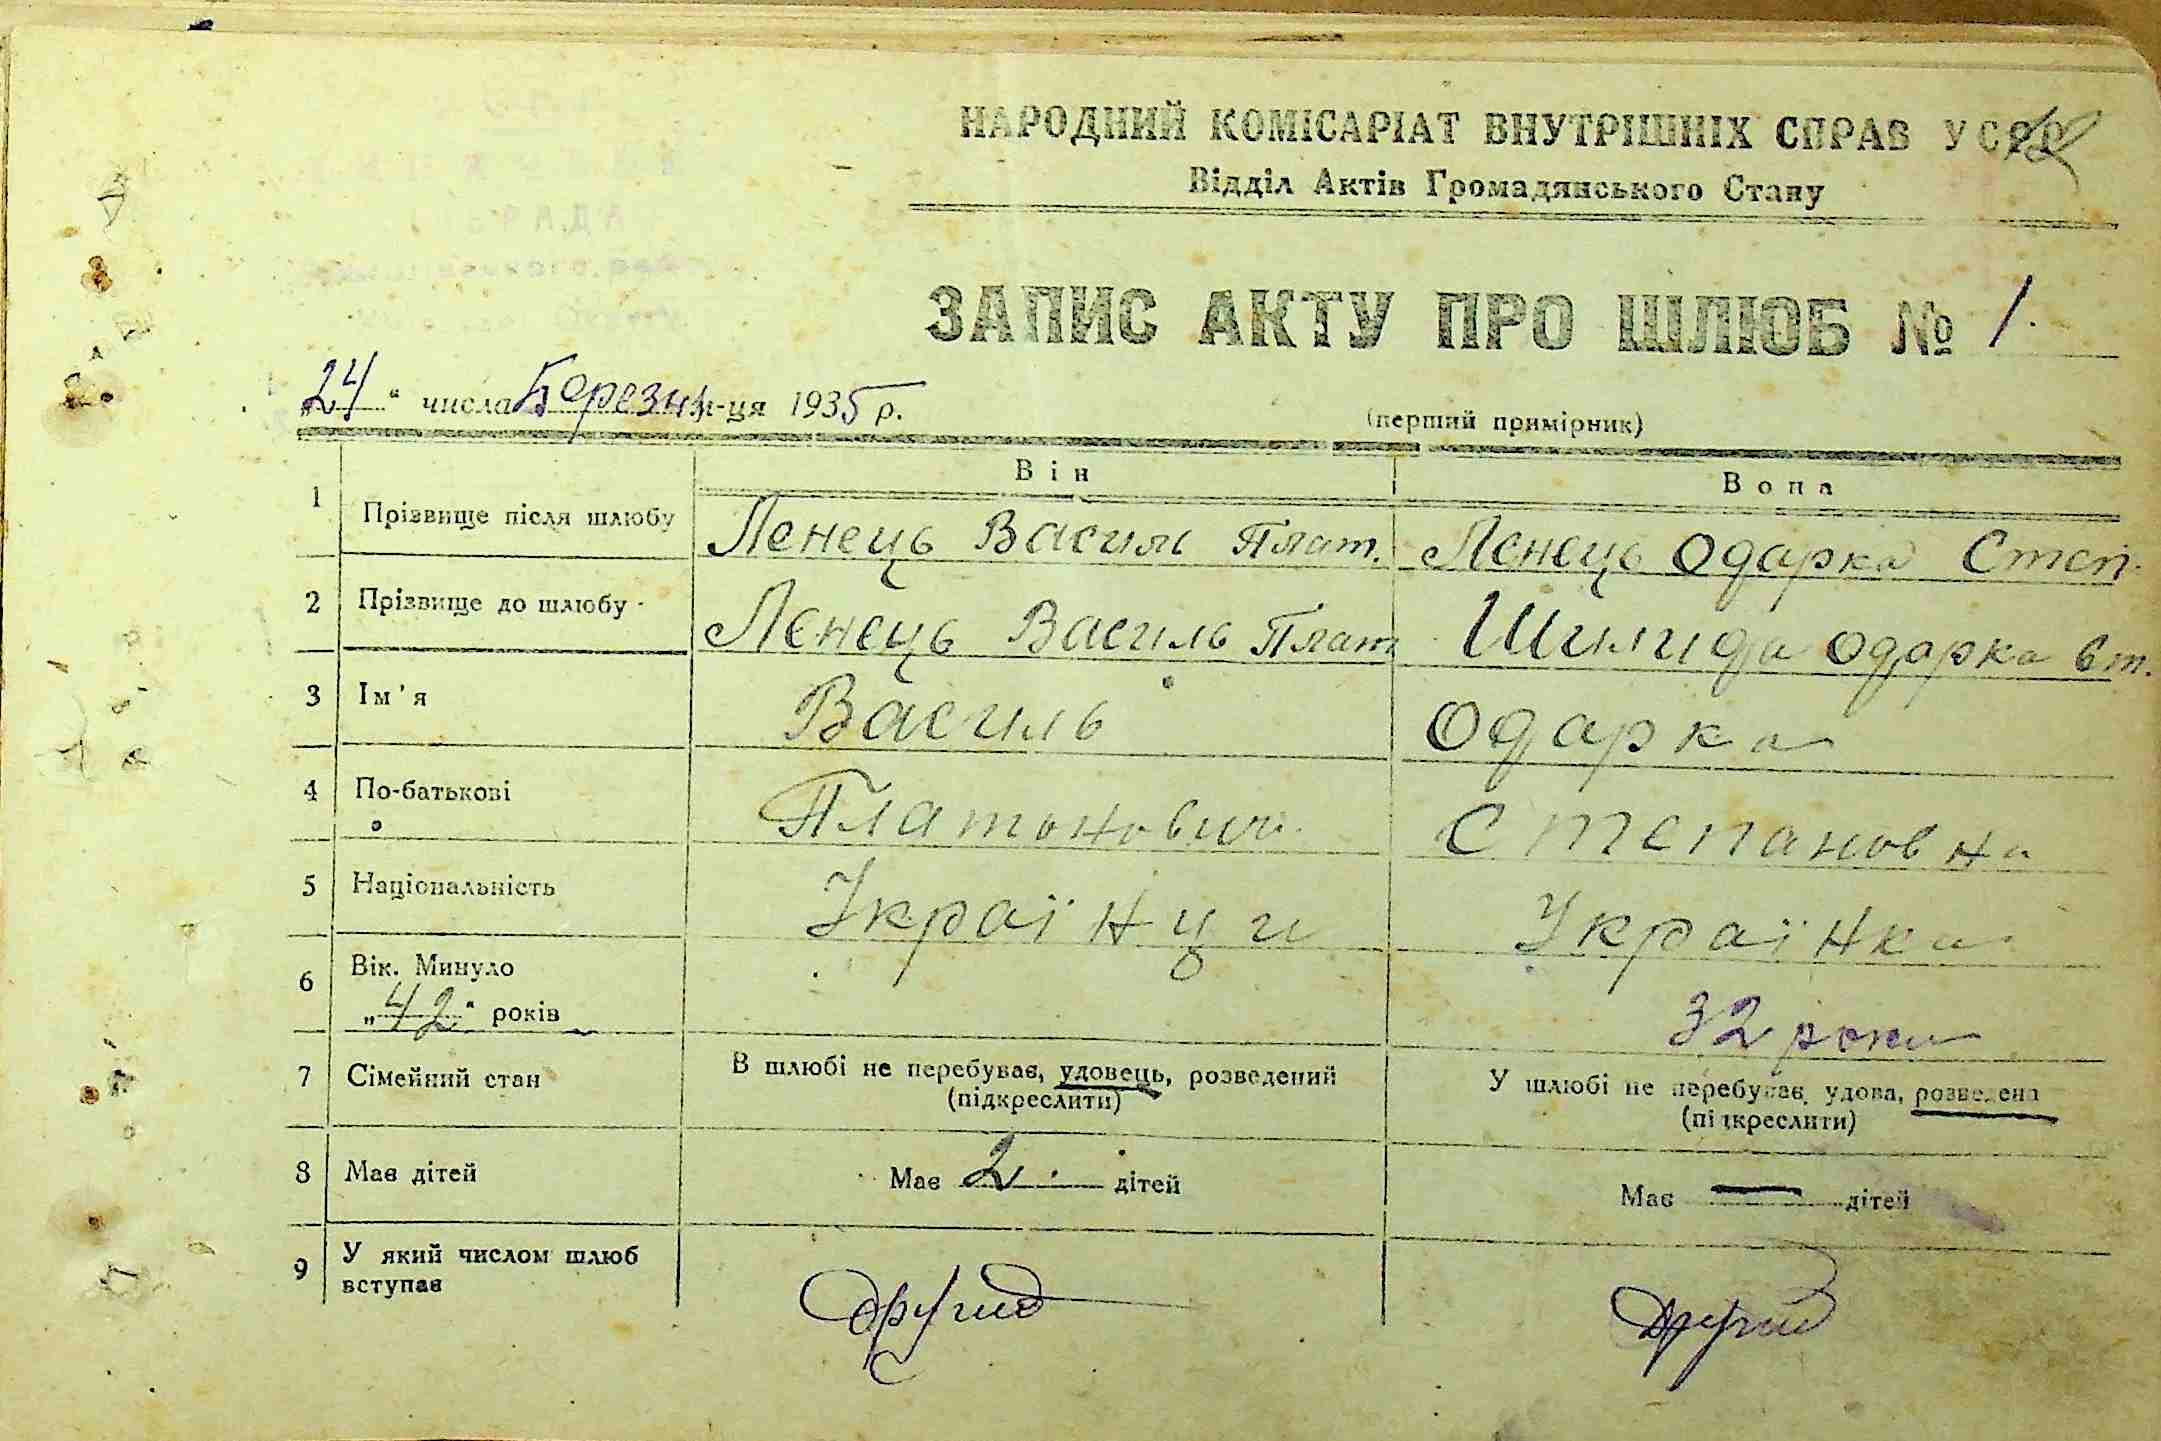 НАРОДНИЙ КОМІСАРІАТ ВНУТРІШНІХ СПРАВ УСРР
Відділ Актів Громадянського Стану
ЗАПИС АКТУ ПРО ШЛЮБ № 1.
„24“ числа Березня м-ця 1935 р.
(перший примірник)
Він
Вона
1 Прізвище після шлюбу Ленець Василь Плат. Ленець Одарка Степ.
2 Прізвище до шлюбу Ленець Василь Плат Шилида Одарка Ст.
3 Ім'я Василь Одарка
4 По-батькові Платонович Степановна
5 Національність Українци Українка
6 Вік. Минуло
„42“ років 32 роки
7 Сімейний стан В шлюбі не перебував, удовець, розведений У шлюбі не перебував, удова, розведена
(підкреслити) (підкреслити)
8 Має дітей Має 2 дітей Має — дітей
9 У який числом шлюб
вступає другий другий